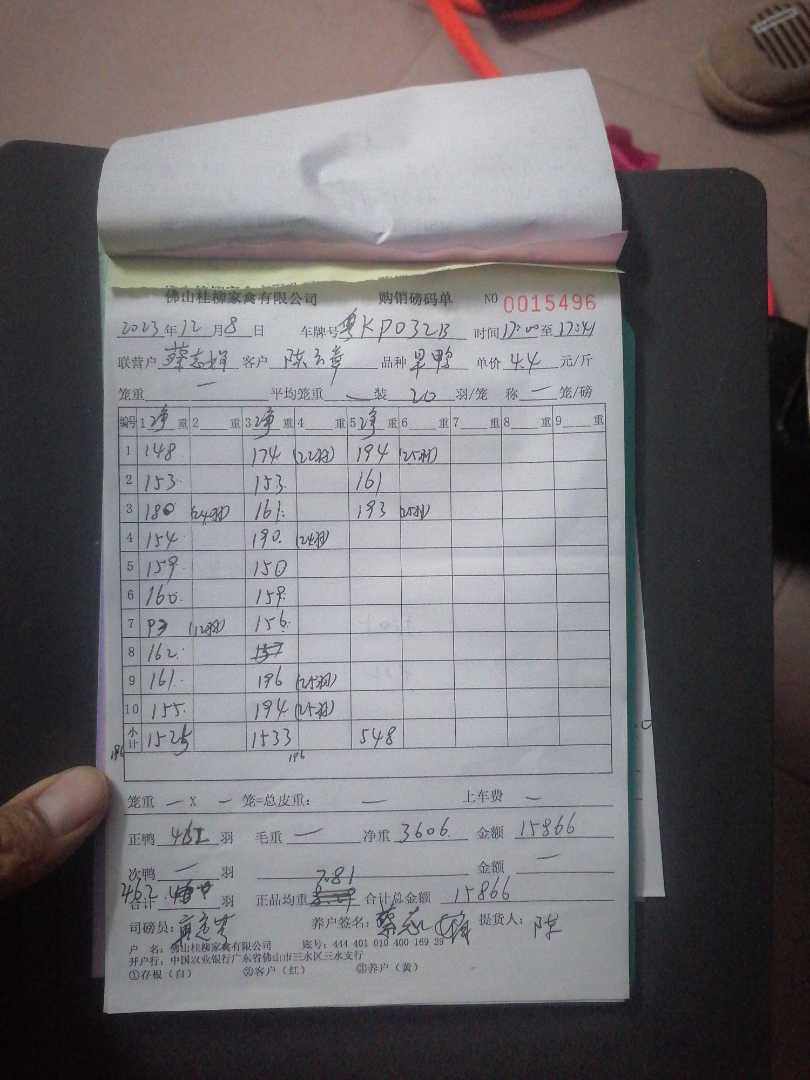 佛山桂柳家禽有限公司 购销磅码单 NO 0015496
2023年12月8日 车牌号 粤KP032B 时间17:00至17:41
联营户 蔡志辉 客户 陈 章 品种 旱鸭 单价 4.4 元/斤
笼重 一 平均笼重 一 装 20 羽/笼 称 一 笼/磅
编号 1 净 重 2 重 3 净 重 4 重 5 净 重 6 重 7 重 8 重 9 重
1 148 174 (22羽) 194 (25羽)
2 153 153 161
3 180 (24羽) 161 193 (25羽)
4 154 190 (24羽)
5 159 150
6 160 159
7 93 (12羽) 156
8 162
9 161 196 (25羽)
10 155 194 (25羽)
小计 1525 1533 548
196 196
笼重 一 X 一 笼=总皮重: 一 上车费 一
正鸭 462 羽 毛重 一 净重 3606 金额 15866
次鸭 一 羽 金额 一
合计 462 羽 正品均重 7.81 合计总金额 15866
司磅员: 养户签名: 蔡志 提货人: 陈
户 名: 佛山桂柳家禽有限公司 账号: 444 401 010 400 169 29
开户行: 中国农业银行广东省佛山市三水区三水支行
①存根(白) ②客户(红) ③养户(黄)